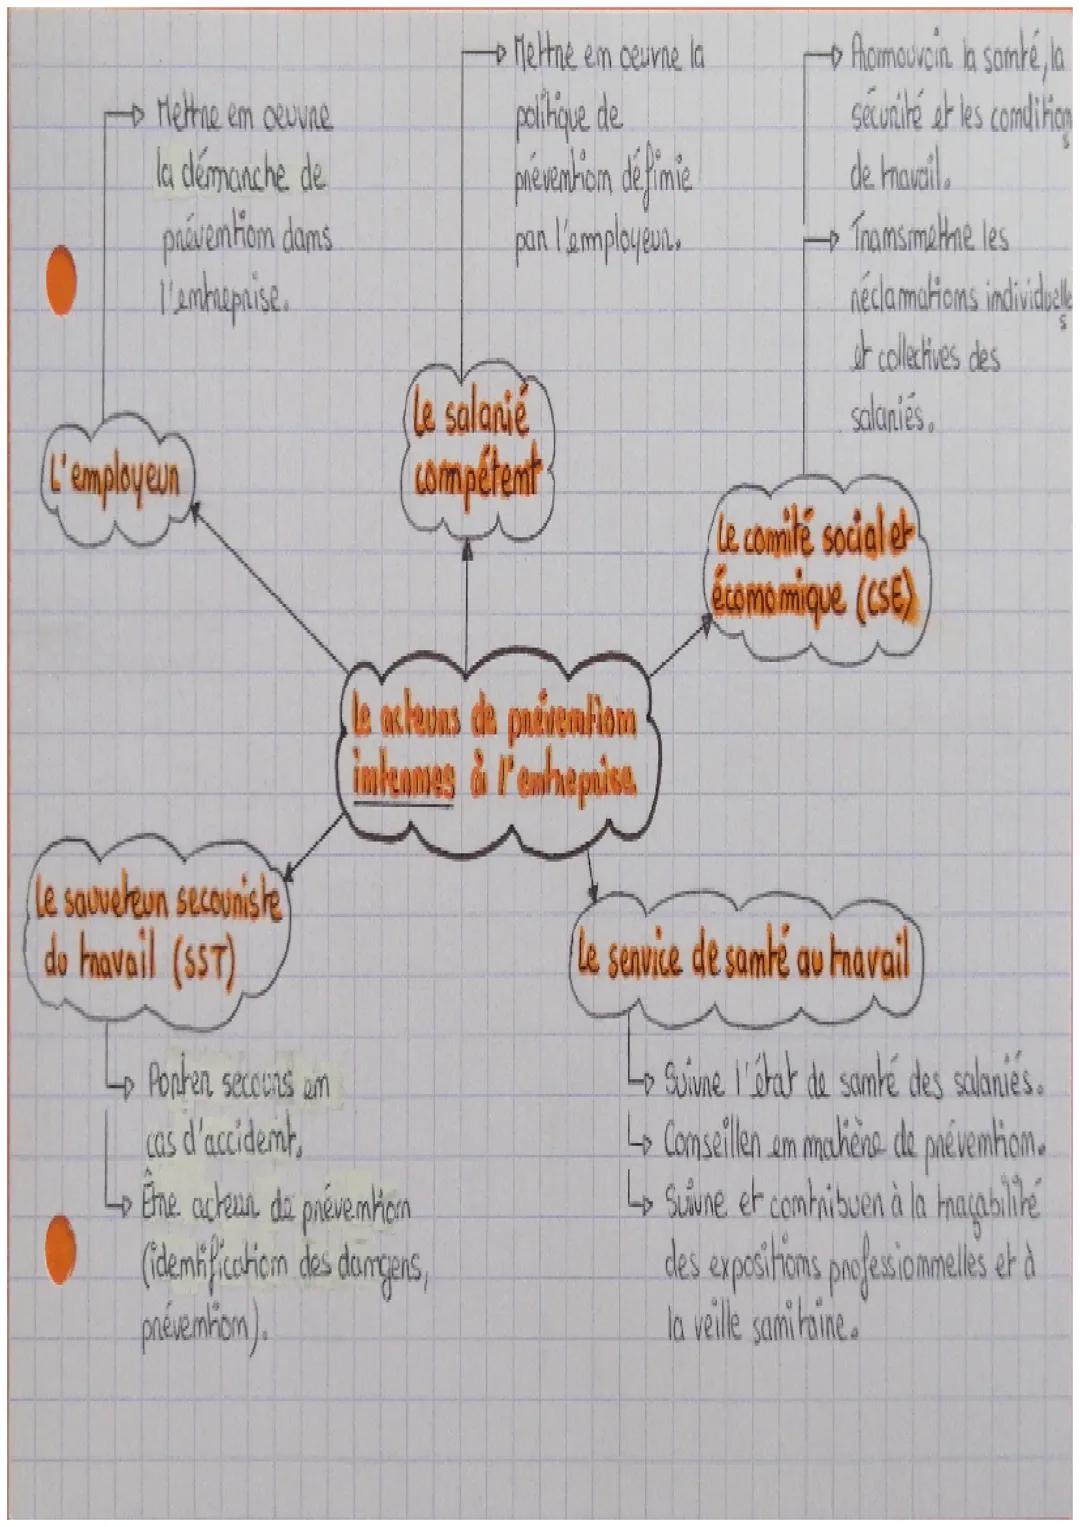 Mettre en oeuvre
la démarche de
prévention dans
l'entreprise.
Mettre en oeuvre la
politique de
prévention définie
par l'employeur.
Promouvoir la santé, la
sécurité et les conditions
de travail.
Transmettre les
réclamations individuelles
et collectives des
salariés.
L'employeur
Le salarié
compétent
Le comité social et
économique (CSE)
Le acteurs de prévention
internes à l'entreprise
Le sauveteur secouriste
du travail (SST)
Porter secours en
cas d'accident,
Être acteur de prévention
(identification des dangers,
prévention).
Le service de santé au travail
Suivre l'état de santé des salariés.
Conseiller en matière de prévention.
Suivre et contribuer à la traçabilité
des expositions professionnelles et à
la veille sanitaire.